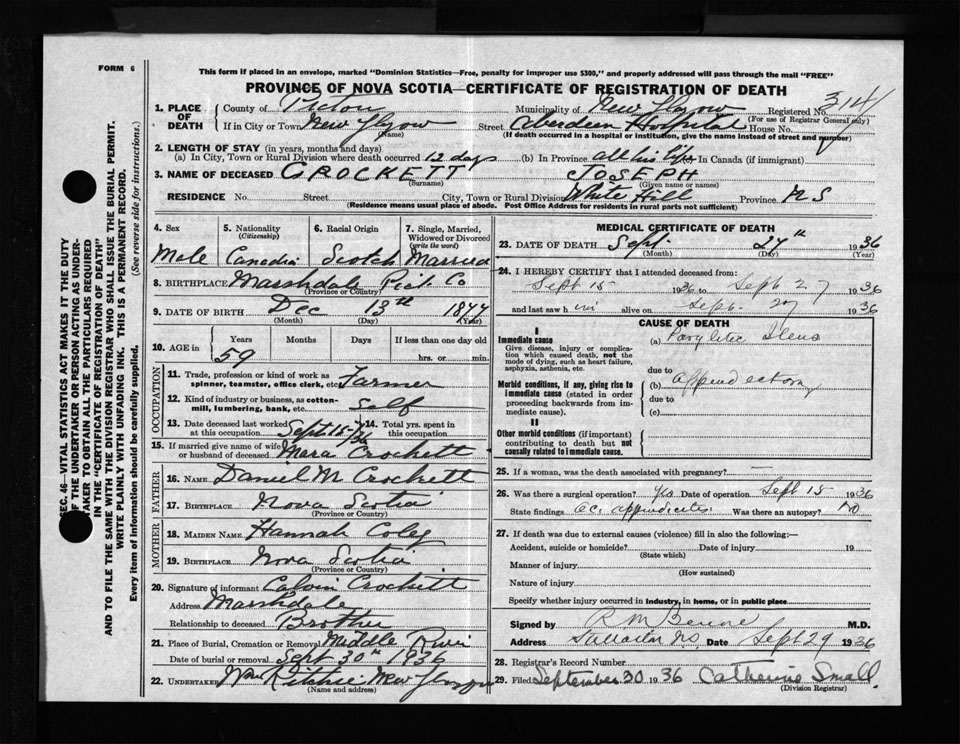 FORM 6
This form if placed in an envelope, marked "Dominion Statistics—Free, penalty for improper use $300," and properly addressed will pass through the mail "FREE"
PROVINCE OF NOVA SCOTIA—CERTIFICATE OF REGISTRATION OF DEATH
1. PLACE OF DEATH County of Pictou Municipality of New Glasgow Registered No. 314
(For use of Registrar General only)
If in City or Town New Glasgow (Name) Street Aberdeen Hospital House No.
(If death occurred in a hospital or institution, give the name instead of street and number)
2. LENGTH OF STAY (in years, months and days)
(a) In City, Town or Rural Division where death occurred 12 days (b) In Province all his life In Canada (if immigrant)
3. NAME OF DECEASED CROCKETT JOSEPH
(Surname) (Given name or names)
RESIDENCE No. Street City, Town or Rural Division White Hill Province N S
(Residence means usual place of abode. Post Office Address for residents in rural parts not sufficient)
4. Sex 5. Nationality (Citizenship) 6. Racial Origin 7. Single, Married, Widowed or Divorced (write the word)
Male Canadian Scotch Married
8. BIRTHPLACE Marshdale Pict Co
(Province or Country)
9. DATE OF BIRTH Dec 13th 1877
(Month) (Day) (Year)
10. AGE in Years Months Days If less than one day old
59 hrs. or min.
OCCUPATION
11. Trade, profession or kind of work as spinner, teamster, office clerk, etc. Farmer
12. Kind of industry or business, as cotton-mill, lumbering, bank, etc. self
13. Date deceased last worked at this occupation Sept 15/36 14. Total yrs. spent in this occupation
15. If married give name of wife or husband of deceased Mara Crockett
FATHER
16. NAME Daniel M Crockett
17. BIRTHPLACE Nova Scotia
(Province or Country)
MOTHER
18. MAIDEN NAME Hannah
19. BIRTHPLACE Nova Scotia
(Province or Country)
20. Signature of informant Calvin Crockett
Address Marshdale
Relationship to deceased Brother
21. Place of Burial, Cremation or Removal Middle River
Date of burial or removal Sept 30th 1936
22. UNDERTAKER Wm Ritchie New Glasgow
(Name and address)
MEDICAL CERTIFICATE OF DEATH
23. DATE OF DEATH Sept. 27th 1936
(Month) (Day) (Year)
24. I HEREBY CERTIFY that I attended deceased from:
Sept 15 1936 to Sept 27 1936
and last saw him alive on Sept. 27 1936
CAUSE OF DEATH
I
Immediate cause
Give disease, injury or complication which caused death, not the mode of dying, such as heart failure, asphyxia, asthenia, etc.
(a) Paryletic Ileus
due to
Morbid conditions, if any, giving rise to immediate cause (stated in order proceeding backwards from immediate cause).
(b) appendectomy
due to
(c)
II
Other morbid conditions (if important) contributing to death but not causally related to immediate cause.
25. If a woman, was the death associated with pregnancy? —
26. Was there a surgical operation? yes Date of operation Sept 15 1936
State findings ac. appendicitis Was there an autopsy? no
27. If death was due to external causes (violence) fill in also the following:—
Accident, suicide or homicide? Date of injury 19
(State which)
Manner of injury
(How sustained)
Nature of injury
Specify whether injury occurred in industry, in home, or in public place
Signed by R M Benvie M.D.
Address N.S. Date Sept 29 1936
28. Registrar's Record Number
29. Filed September 30 1936 Catherine Small
(Division Registrar)
SEC. 46—VITAL STATISTICS ACT MAKES IT THE DUTY
OF THE UNDERTAKER OR PERSON ACTING AS UNDERTAKER TO OBTAIN ALL THE PARTICULARS REQUIRED
IN THE "CERTIFICATE OF REGISTRATION OF DEATH"
AND TO FILE THE SAME WITH THE DIVISION REGISTRAR WHO SHALL ISSUE THE BURIAL PERMIT.
WRITE PLAINLY WITH UNFADING INK. THIS IS A PERMANENT RECORD.
Every item of information should be carefully supplied. (See reverse side for instructions.)